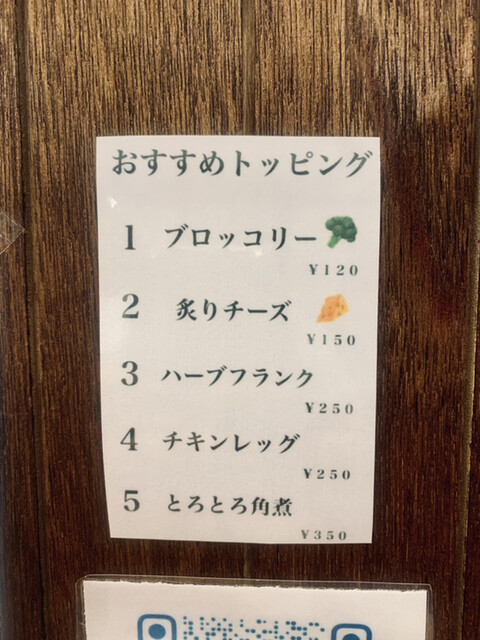 おすすめトッピング
1 ブロッコリー
¥120
2 炙りチーズ
¥150
3 ハーブフランク
¥250
4 チキンレッグ
¥250
5 とろとろ角煮
¥350